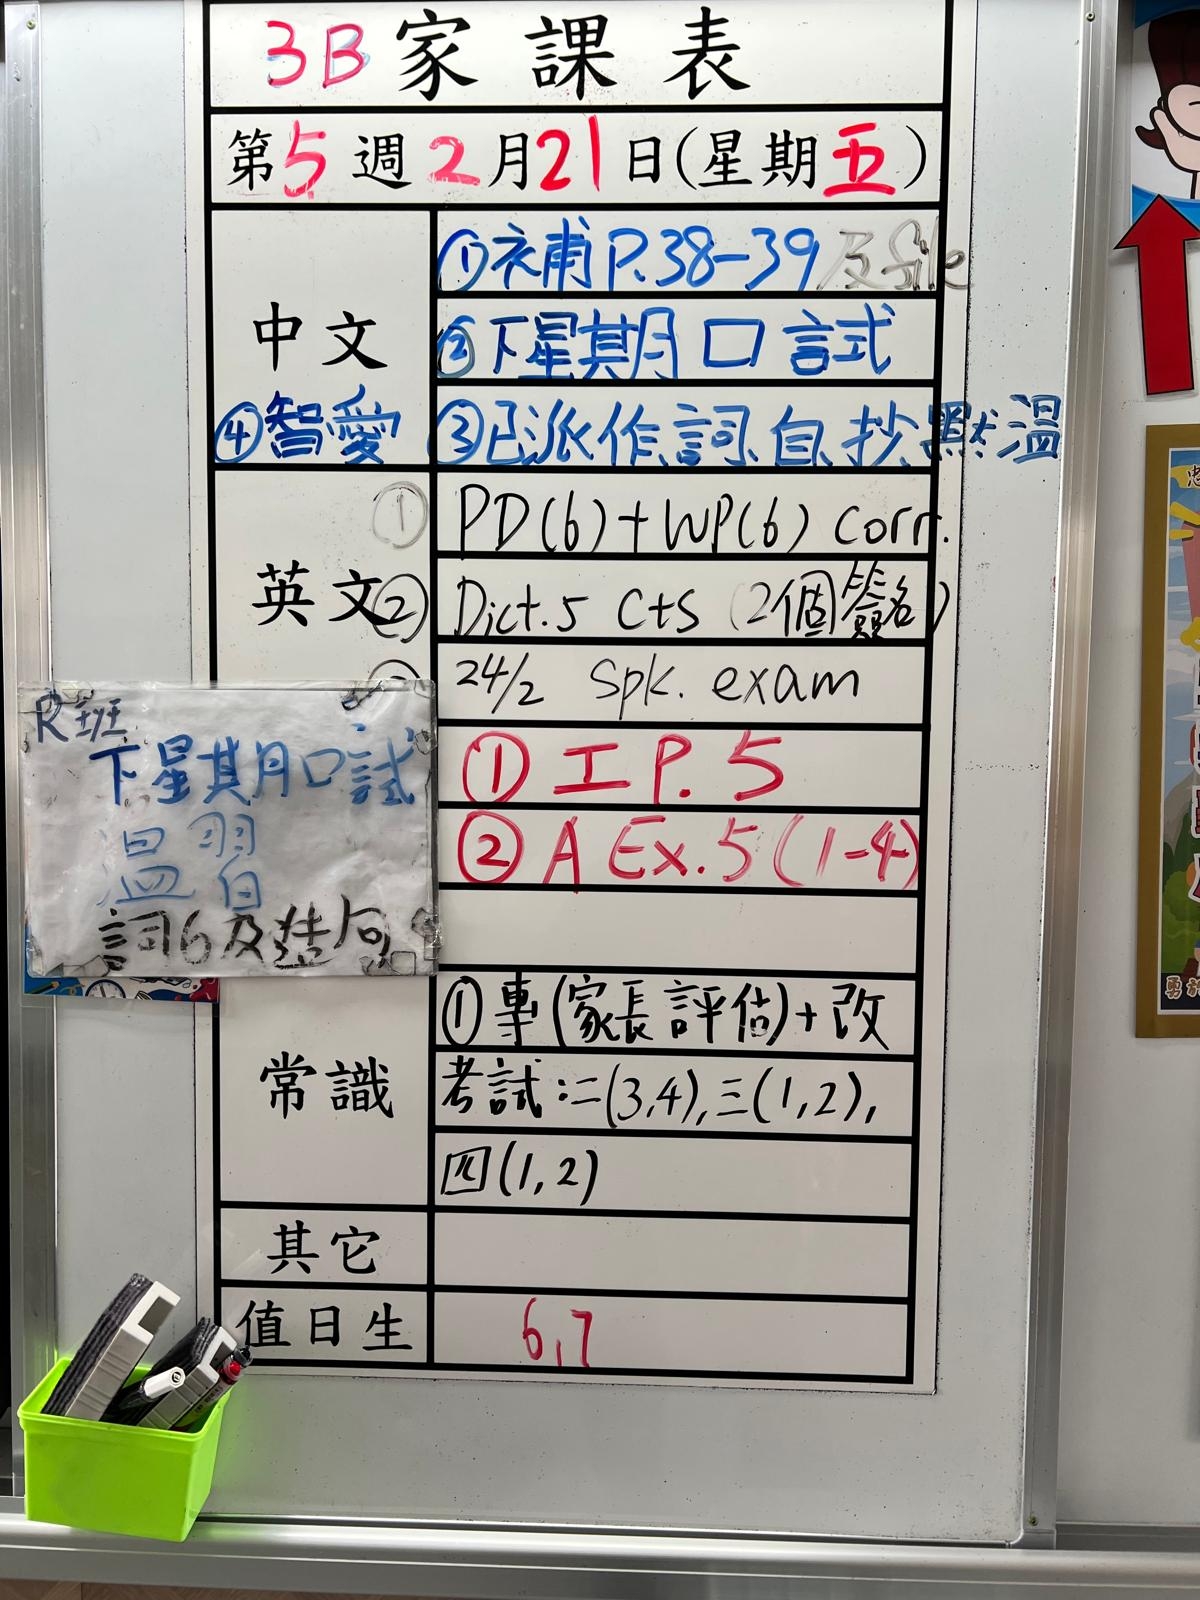 3B 家課表
第5週2月21日(星期五)
中文
①補P.38-39及file
②下星期口試
④智愛
③已派作,詞,自,抄,默溫
英文
① PD(6)+WP(6) corr.
② Dict.5 cts (2個簽名)
24/2 spk. exam
R班
下星期口試
溫習
詞6及造句
① 工 P.5
② A Ex.5 (1-4)
常識
①專(家長評估)+改
考試:二(3,4),三(1,2),
四(1,2)
其它
值日生
6,7